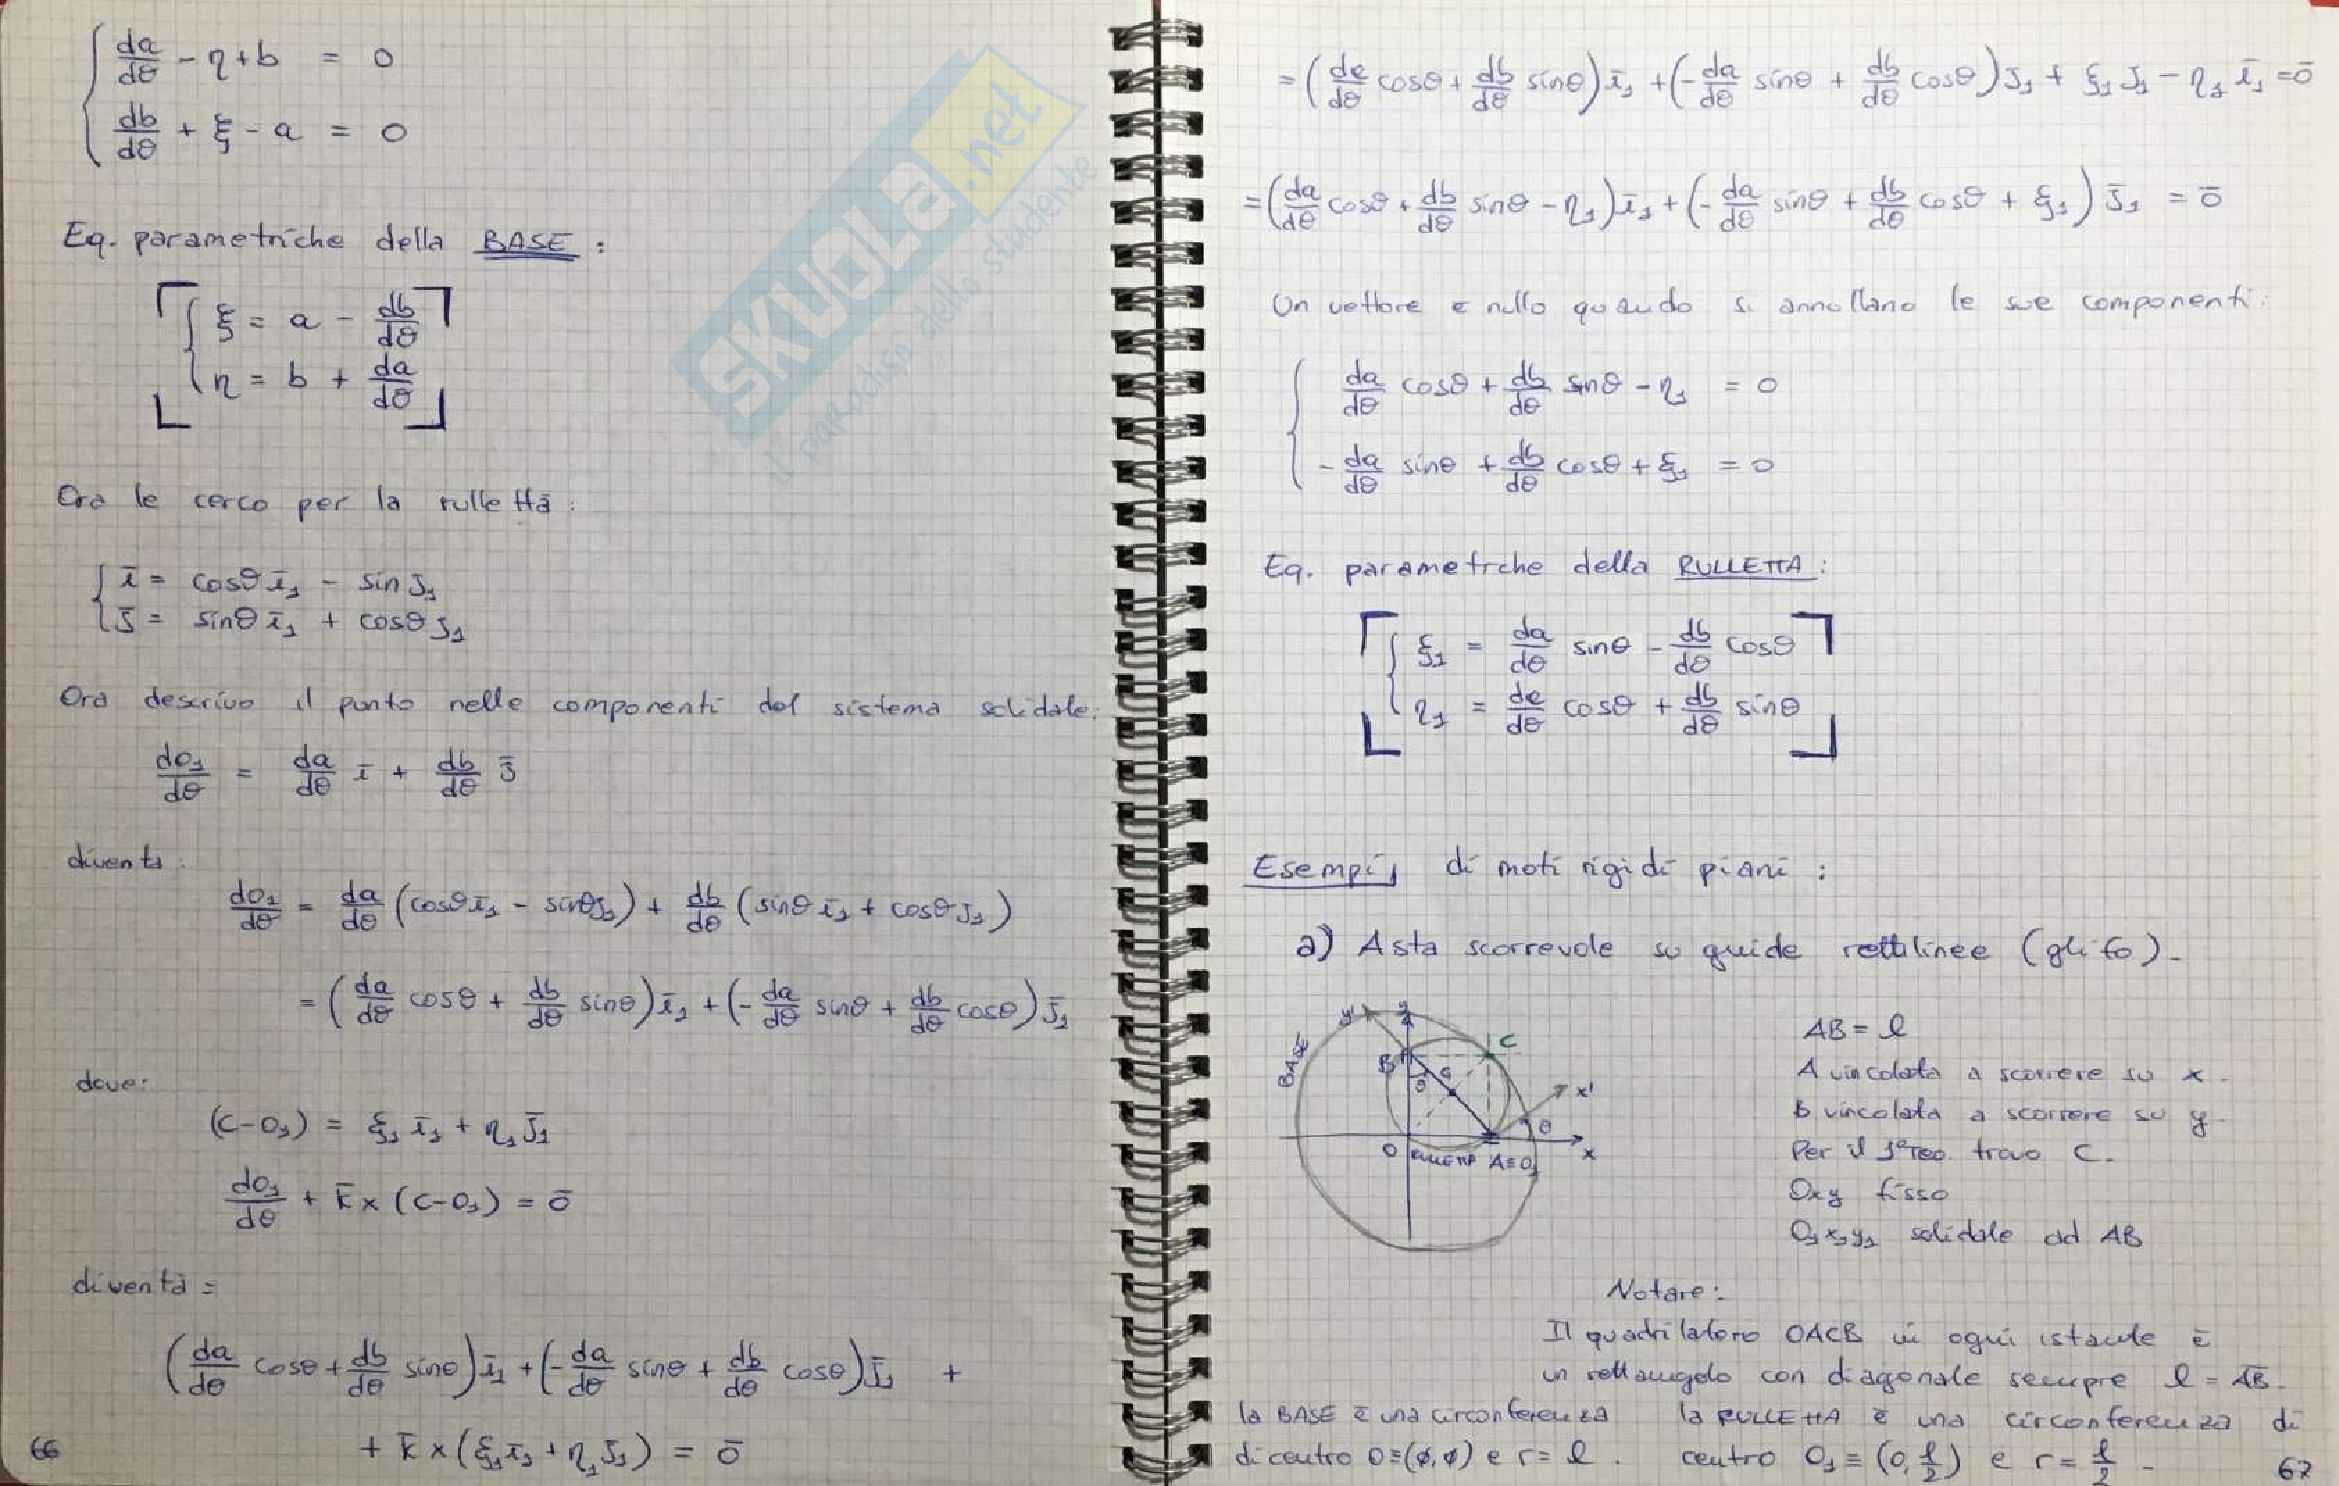 { da/dθ - η + b = 0
db/dθ + ξ - a = 0
Eq. parametriche della BASE :
{ ξ = a - db/dθ
η = b + da/dθ
Ora le cerco per la rulletta :
{ ī = cosθ ī₁ - sin J₁
J̄ = sinθ ī₁ + cosθ J₁
Ora descrivo il punto nelle componenti del sistema solidale:
dO₁/dθ = da/dθ ī + db/dθ J̄
diventa :
dO₁/dθ = da/dθ (cosθ ī₁ - sinθ J₁) + db/dθ (sinθ ī₁ + cosθ J₁)
= (da/dθ cosθ + db/dθ sinθ) ī₁ + (-da/dθ sinθ + db/dθ cosθ) J̄₁
dove:
(C-O₁) = ξ₁ ī₁ + η₁ J̄₁
dO₁/dθ + k̄ × (C-O₁) = ō
diventa =
(da/dθ cosθ + db/dθ sinθ) ī₁ + (-da/dθ sinθ + db/dθ cosθ) J̄₁ +
+ k̄ × (ξ₁ ī₁ + η₁ J̄₁) = ō
66
SKUOLA.net
il paradiso dello studente
= (da/dθ cosθ + db/dθ sinθ) ī₁ + (-da/dθ sinθ + db/dθ cosθ) J₁ + ξ₁ J₁ - η₁ ī₁ = ō
= (da/dθ cosθ + db/dθ sinθ - η₁) ī₁ + (-da/dθ sinθ + db/dθ cosθ + ξ₁) J̄₁ = ō
Un vettore è nullo quando si annullano le sue componenti:
{ da/dθ cosθ + db/dθ sinθ - η₁ = 0
- da/dθ sinθ + db/dθ cosθ + ξ₁ = 0
Eq. parametrche della RULLETTA :
{ ξ₁ = da/dθ sinθ - db/dθ cosθ
η₁ = da/dθ cosθ + db/dθ sinθ
Esempi, di moti rigidi piani :
a) Asta scorrevole su guide rettilinee (glifo).
BASE
y'
B
C
G
θ
x'
θ
x
O
RULLETTA
A≡O₁
AB = l
A vincolata a scorrere su x.
B vincolata a scorrere su y.
Per il 1° Teo. trovo C.
Oxy fisso
O₁x₁y₁ solidale ad AB
Notare:
Il quadrilatero OACB in ogni istante è
un rettangolo con diagonale sempre l = AB.
la BASE è una circonferenza
di centro O≡(0,0) e r = l.
la RULLETTA è una circonferenza di
centro O₁ ≡ (0, l/2) e r = l/2 -
67